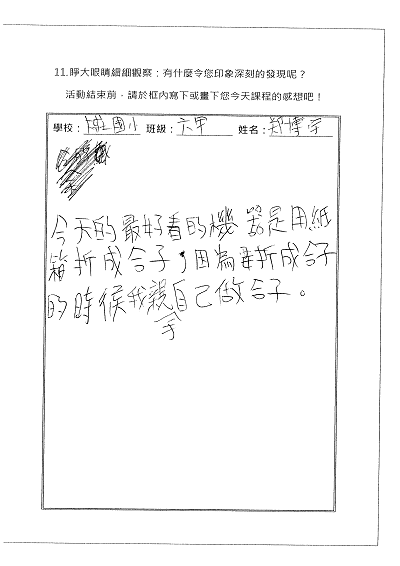 11.睜大眼睛細細觀察：有什麼令您印象深刻的發現呢？
活動結束前，請於框內寫下或畫下您今天課程的感想吧！
學校：國小 班級：六甲 姓名：鄭博宇
今天的最好看的機器是用紙
箱折成合子，因為要折成合子
的時候我親手自己做合子。